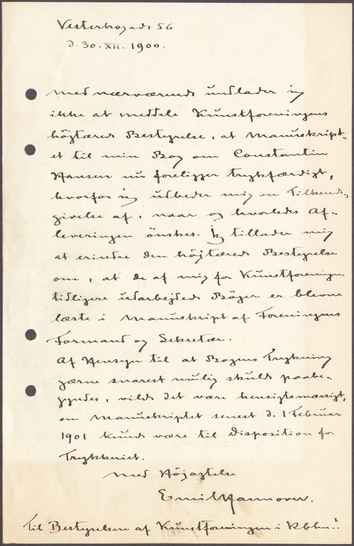 Vesterbrogade 56
d. 30. XII. 1900.
Med nærværende undlader jeg
ikke at meddele Kunstforeningens
højtærede Bestyrelse, at Manuskript-
et til min Bog om Constantin
Hansen nu foreligger trykfærdigt,
hvorfor jeg udbeder mig en Tilkende-
givelse af, naar og hvorledes Af-
leveringen ønskes. Jeg tillader mig
at erindre den højtærede Bestyrelse
om, at de af mig for Kunstforeningen
tidligere udarbejdede Bøger er blevne
læste i Manuskript af Foreningens
Formand og Sekretær.
Af Hensyn til at Bogens Trykning
gærne snarest mulig skulde paabe-
gyndes, vilde det være hensigtsmæssigt,
om Manuskriptet senest d. 1 Februar
1901 kunde være til Disposition for
Trykkeriet.
Med Højagtelse
Emil Hannover.
Til Bestyrelsen af Kunstforeningen i Kbhn.